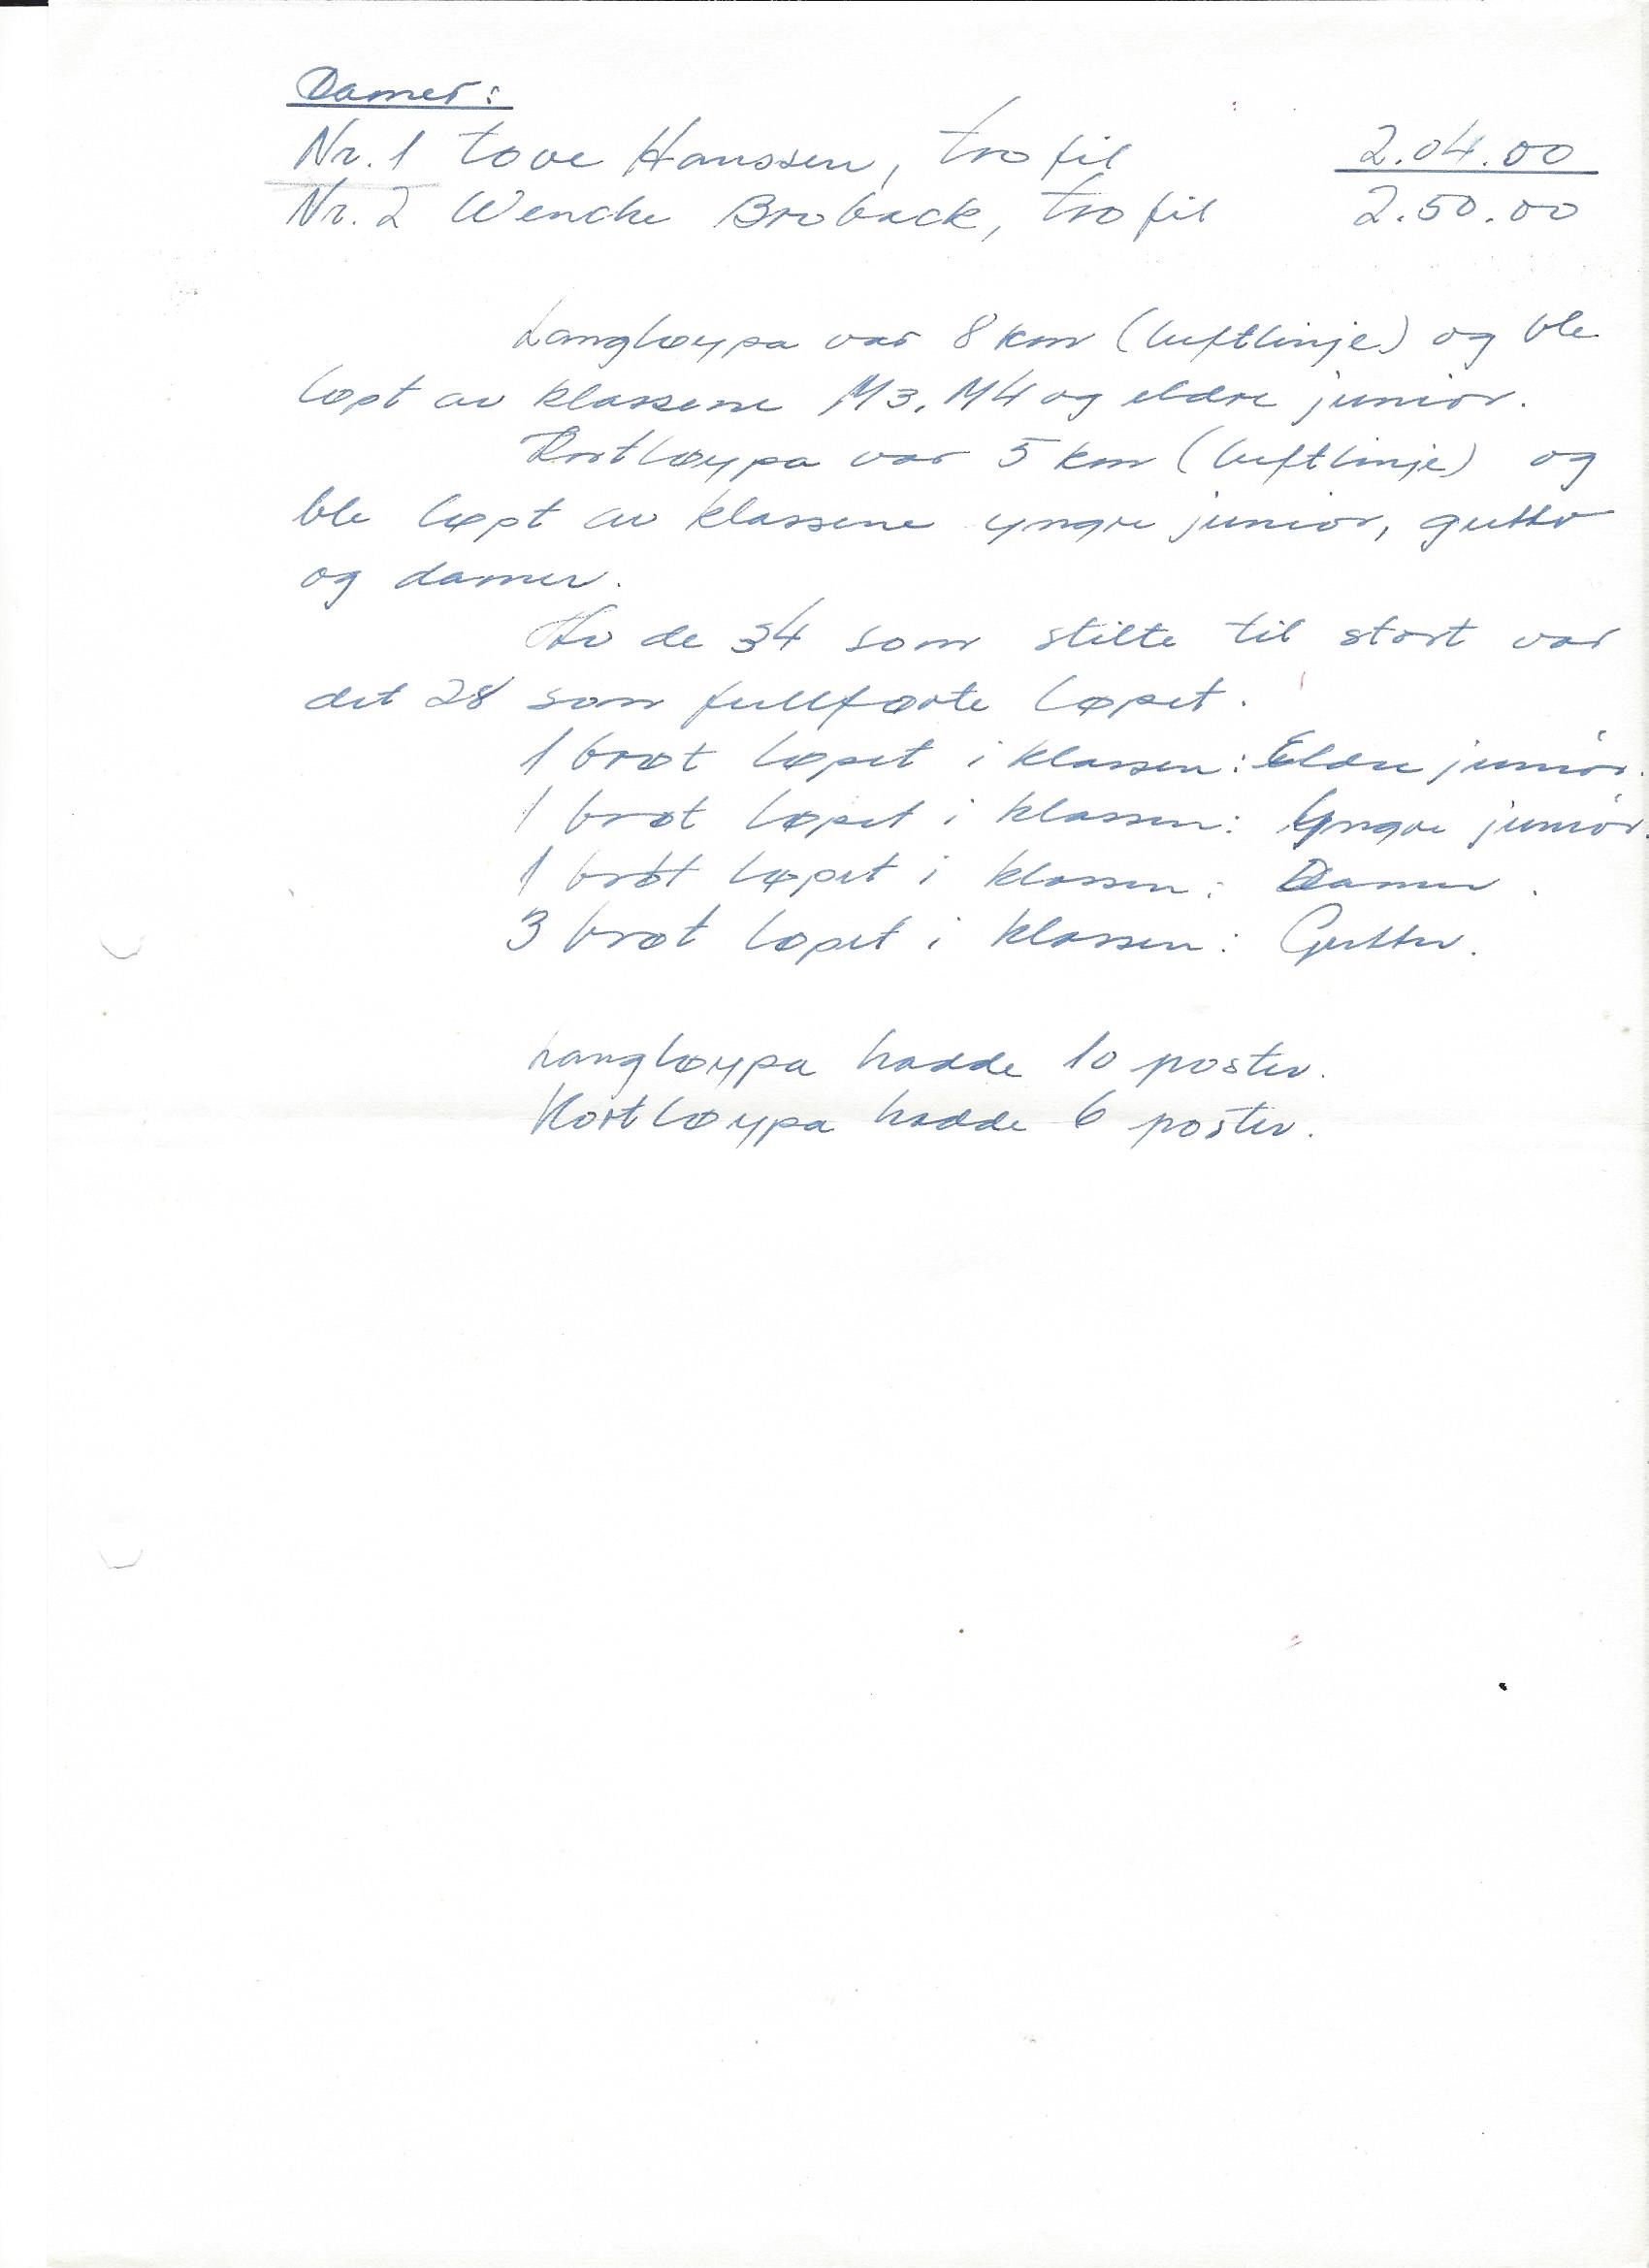 Damer:
Nr. 1 Tove Hanssen, Trofil 2.04.00
Nr. 2 Wenche Broback, Trofil 2.50.00
Langløypa var 8 km (luftlinje) og ble
løpt av klassene M3, M4 og eldre junior.
Kortløypa var 5 km (luftlinje) og
ble løpt av klassene yngre junior, gutter
og damer.
Av de 34 som stilte til start var
det 28 som fullførte løpet.
1 brøt løpet i klassen: Eldre junior.
1 brøt løpet i klassen: Yngre junior.
1 brøt løpet i klassen: Damer.
3 brøt løpet i klassen: Gutter.
Langløypa hadde 10 poster.
Kortløypa hadde 6 poster.